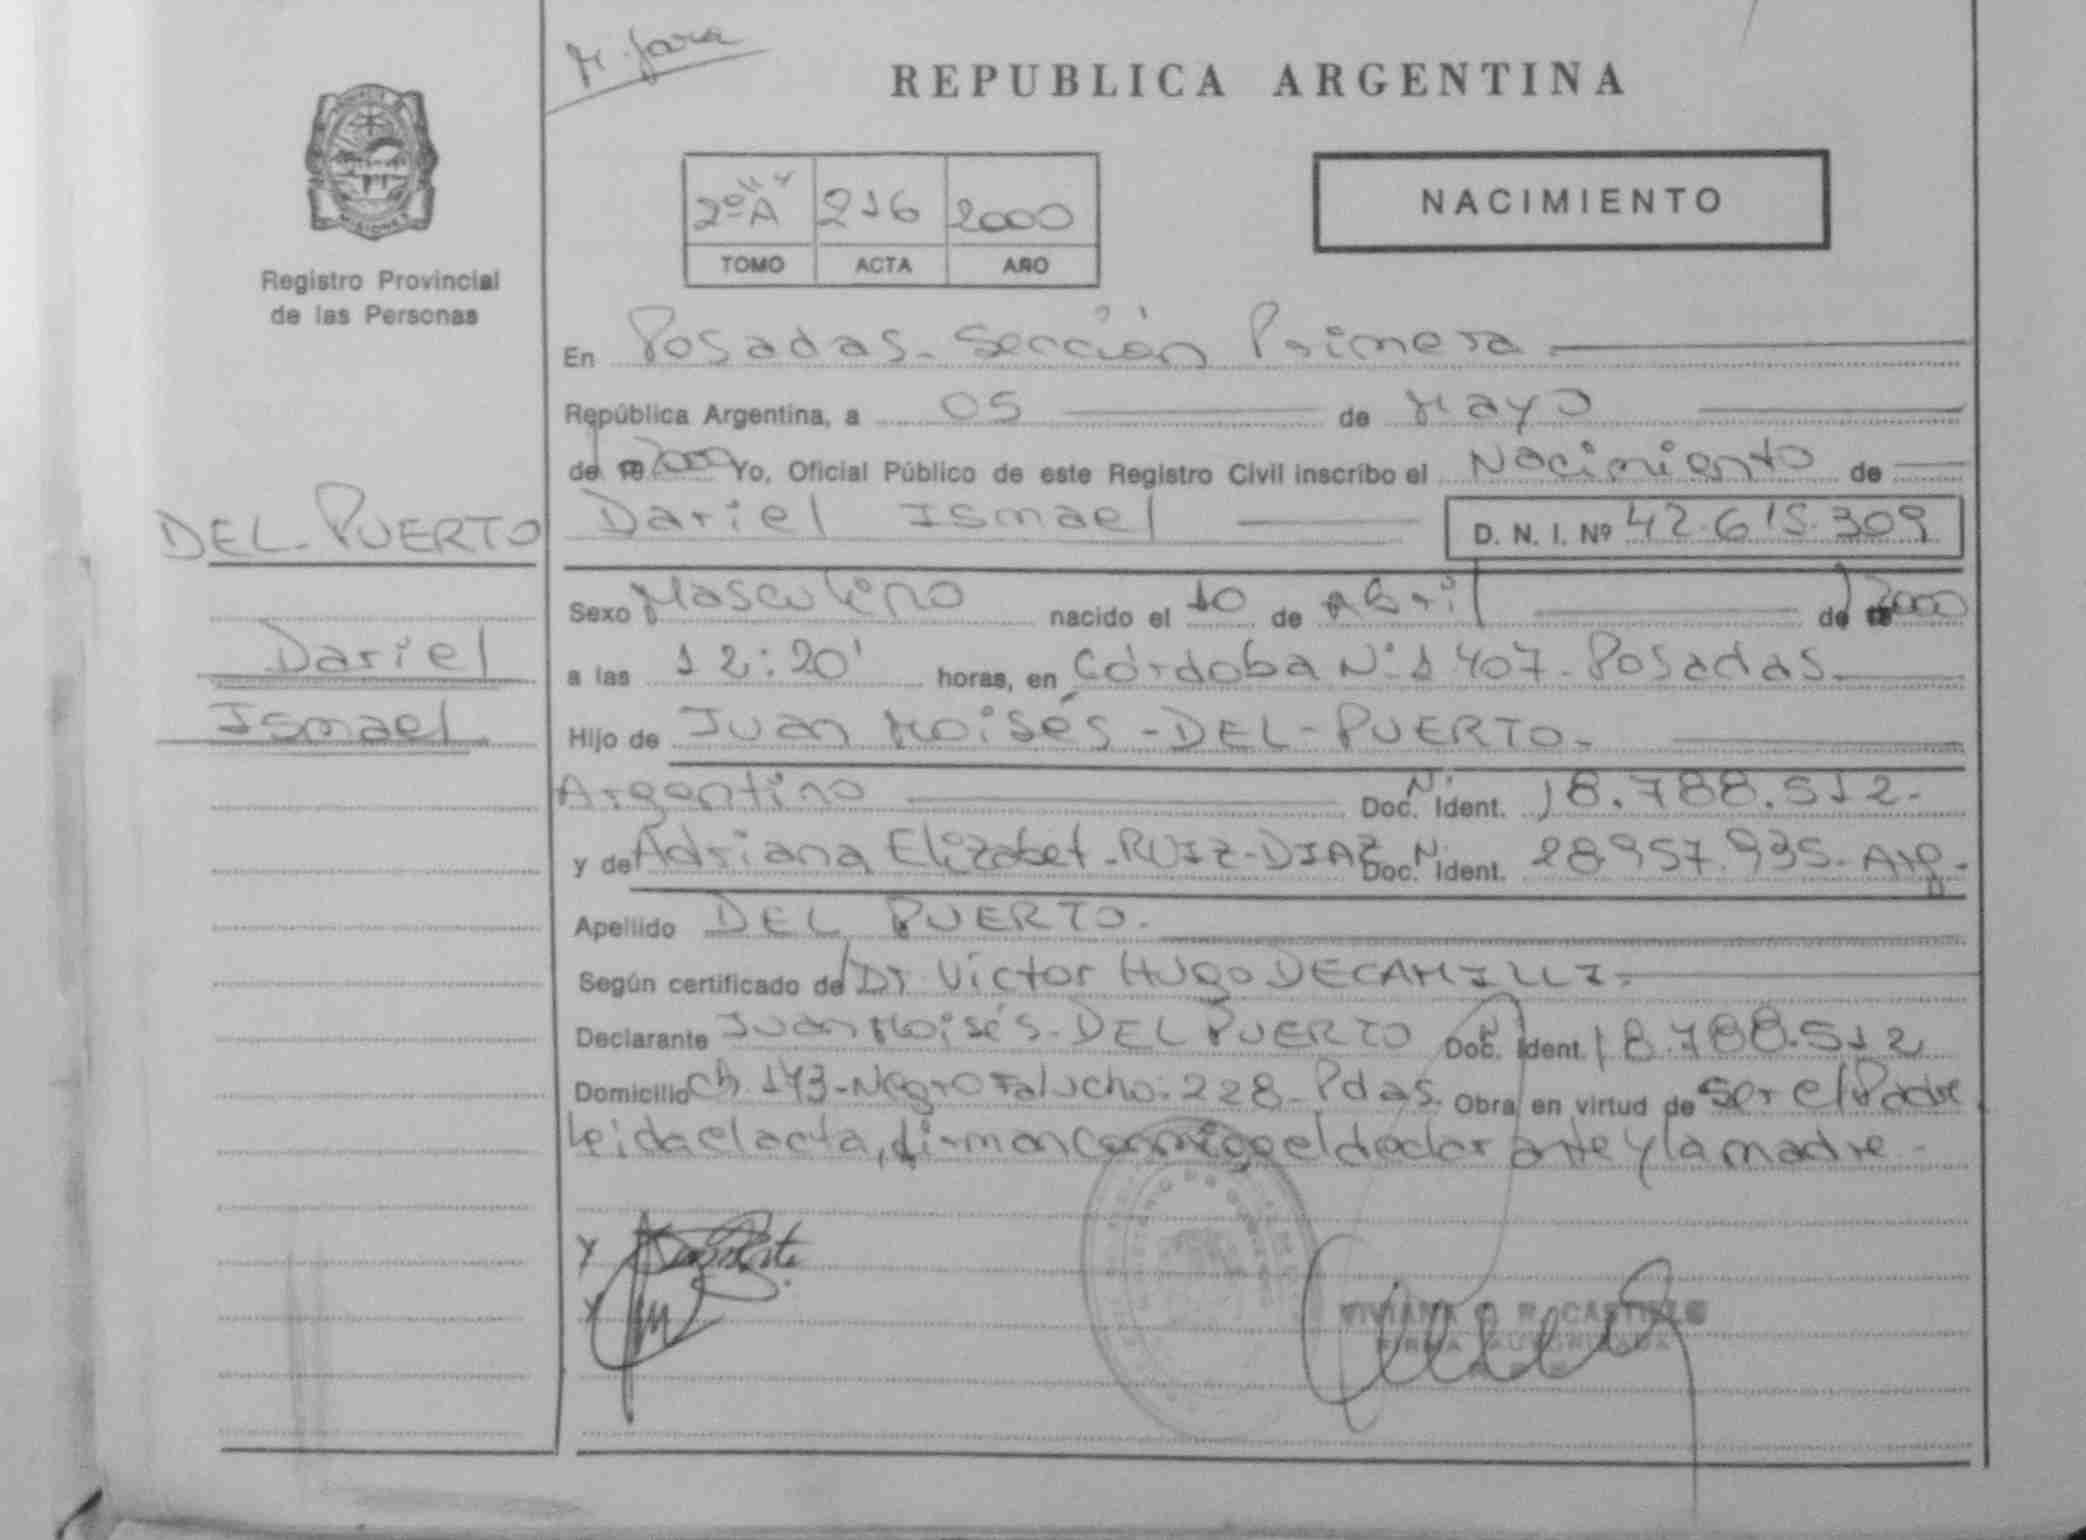 M. Jara
REPUBLICA ARGENTINA
2º "A" 216 2000
TOMO ACTA AÑO
NACIMIENTO
MISIONES
Registro Provincial
de las Personas
DEL-PUERTO
Dariel
Ismael
En Posadas - Sección Primera
República Argentina, a 05 de Mayo
de 2000 Yo, Oficial Público de este Registro Civil inscribo el Nacimiento de
Dariel Ismael D. N. I. Nº 42.615.309
Sexo Masculino nacido el 10 de Abril de 2000
a las 12:20' horas, en Córdoba Nº 1407 - Posadas
Hijo de Juan Moisés - DEL - PUERTO -
Argentino Doc. Nº Ident. 18.788.512 -
y de Adriana Elizabet - RUIZ - DIAZ Doc. Nº Ident. 28.957.935 - Arg -
Apellido DEL PUERTO -
Según certificado de Dr Víctor Hugo DECAMILLI -
Declarante Juan Moisés - DEL PUERTO Doc. Nº Ident. 18.788.512
Domicilio Ch 143 - Negro Falucho: 228 - Pdas. Obra en virtud de ser el Padre
Leida el acta, firman conmigo el declarante y la madre -
VIVIANA R. CASTILLO
FIRMA AUTORIZADA